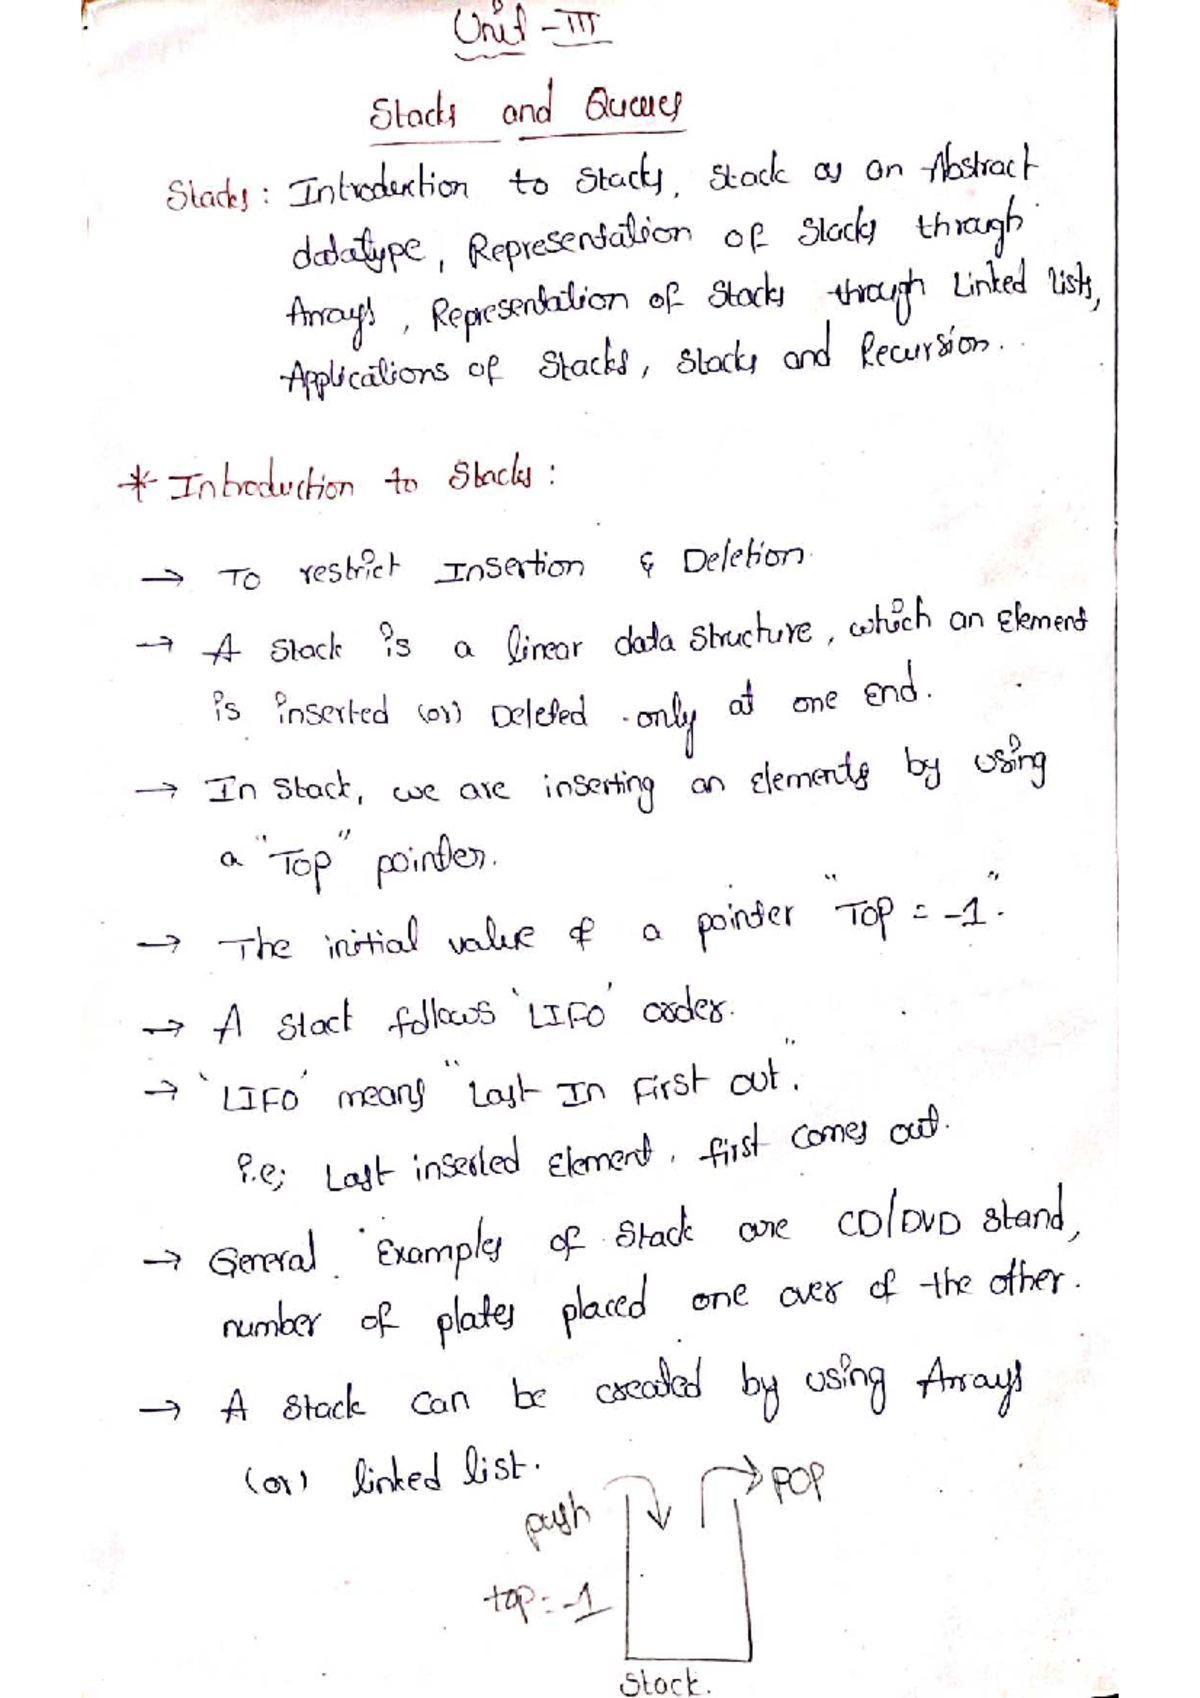 Unit - III
Stacks and Queues
Stacks : Introduction to Stacks, Stack as an Abstract
datatype, Representation of Stacks through
Arrays, Representation of Stacks through Linked lists,
Applications of Stacks, Stacks and Recursion.
* Introduction to Stacks :
→ To restrict Insertion & Deletion.
→ A Stack is a linear data structure, which an Element
is inserted (or) Deleted only at one End.
→ In Stack, we are inserting an Elements by using
a "Top" pointer.
→ The initial value of a pointer "TOP = -1".
→ A Stack follows 'LIFO' order.
→ 'LIFO' means "Last In First out".
i.e; Last inserted Element, first comes out.
→ General Examples of Stack are CD/DVD Stand,
number of plates placed one over of the other.
→ A Stack can be created by using Arrays
(or) linked list.
push
POP
top = -1
Stack.